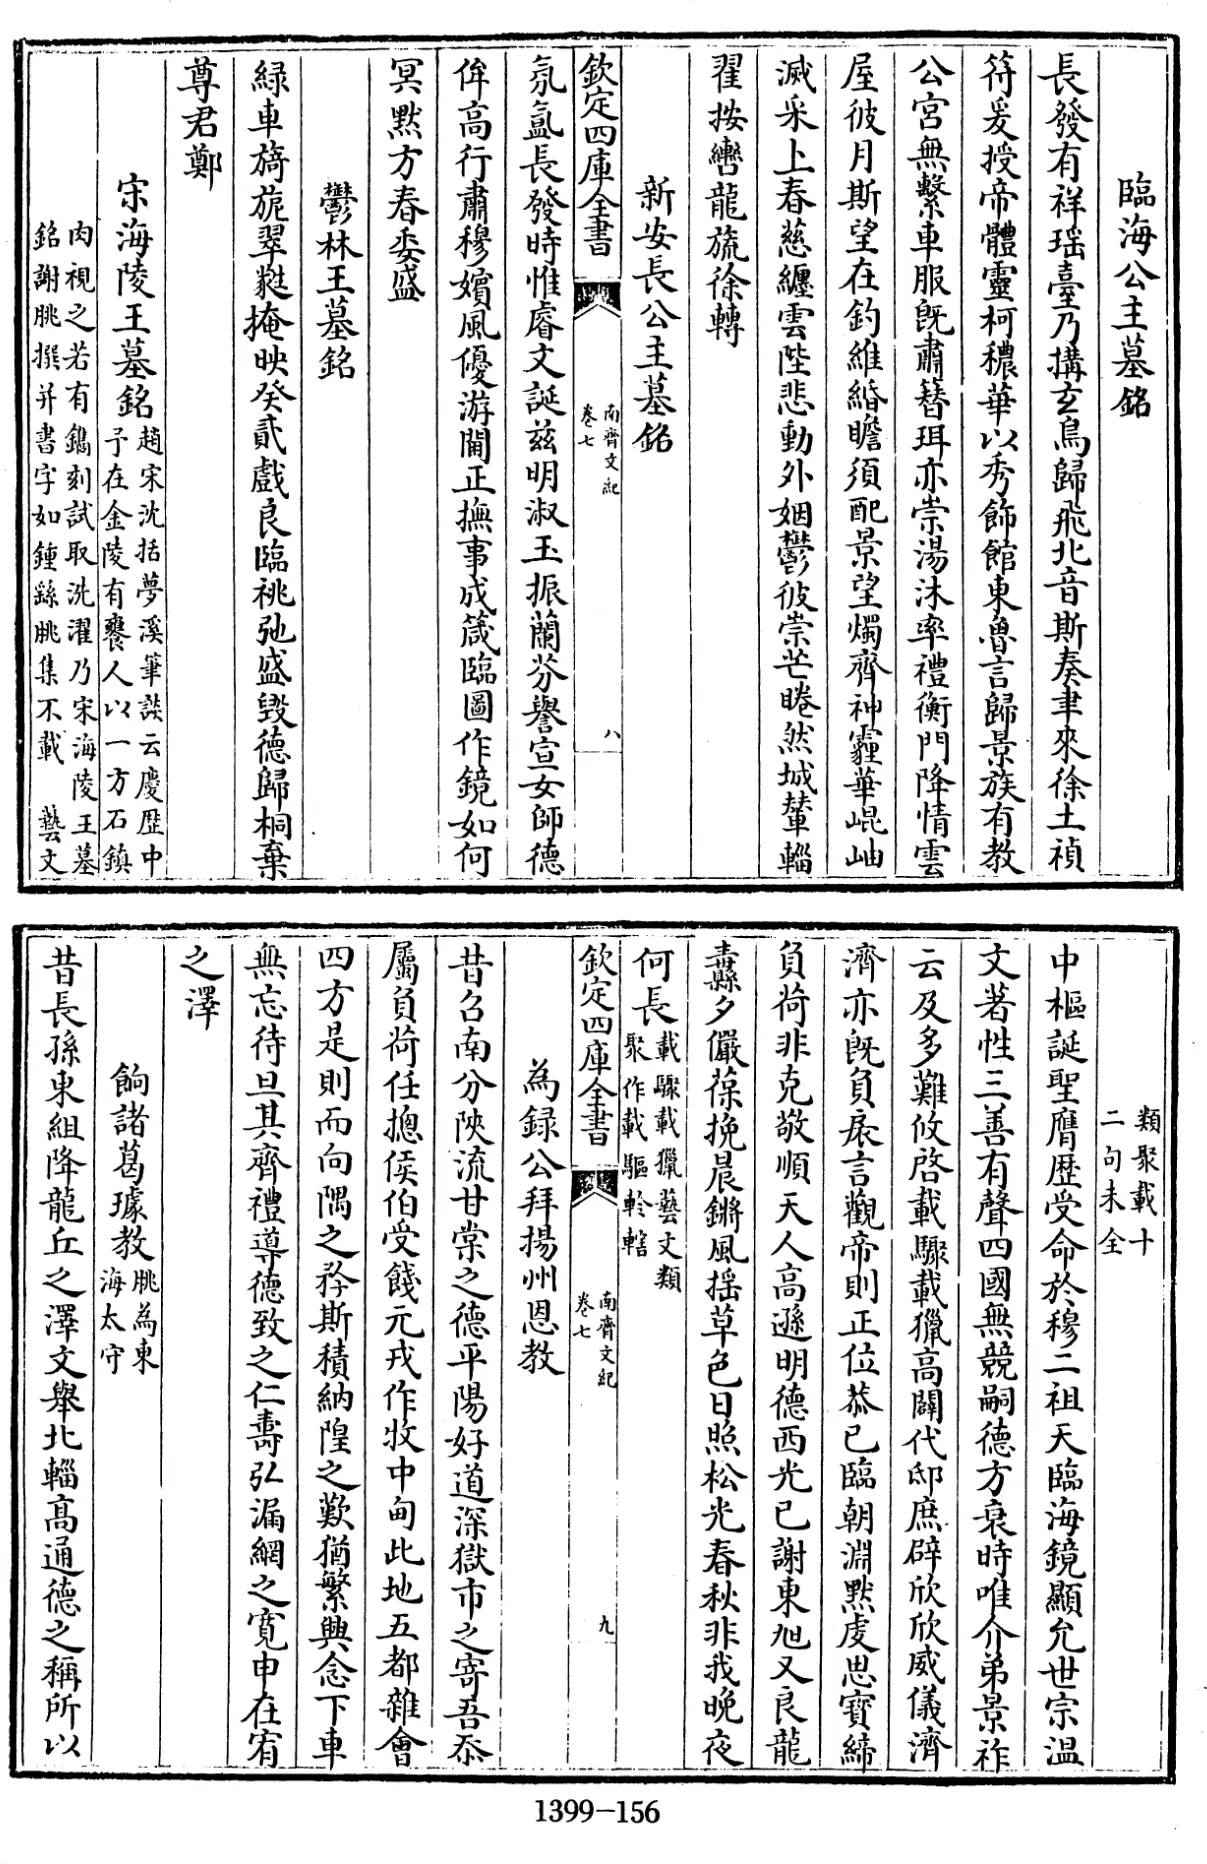 臨海公主墓銘
長發有祥瑶臺乃搆玄鳥歸飛北音斯奏聿來徐土禎
符爰授帝體靈柯穠華以秀飾館東魯言歸景族有教
公宮無繫車服既肅簪珥亦崇湯沐率禮衡門降情雲
屋彼月斯望在釣維緍瞻須配景望燭齊神霾華崐岫
滅采上春慈纏雲陛悲動外姻鬱彼崇芒睠然城輦輜
翟按轡龍旒徐轉
新安長公主墓銘
欽定四庫全書
南齊文紀
卷七
八
氛氲長發時惟睿文誕兹明淑玉振蘭芬譽宣女師德
侔高行肅穆嬪風優游閫正撫事成箴臨圖作鏡如何
冥黙方春委盛
鬱林王墓銘
緑車旖旎翠䍦掩映癸貳戲良臨祧弛盛毁德歸桐棄
尊君鄭
宋海陵王墓銘趙宋沈括夢溪筆談云慶歴中
予在金陵有饔人以一方石鎮
肉視之若有鐫刻試取洗濯乃宋海陵王墓
銘謝朓撰并書字如鍾繇朓集不載 藝文
類聚載十
二句未全
中樞誕聖膺歴受命於穆二祖天臨海鏡顯允世宗温
文著性三善有聲四國無競嗣德方衰時唯介弟景祚
云及多難攸啓載驟載獵高闢代邸庶辟欣欣威儀濟
濟亦既負扆言觀帝則正位恭已臨朝淵黙虔思寳締
負荷非克敬順天人高遜明德西光已謝東旭又良龍
纛夕儼葆挽晨鏘風摇草色日照松光春秋非我晚夜
何長載驟載獵藝文類
聚作載驅軨轄
欽定四庫全書
南齊文紀
卷七
九
為録公拜揚州恩教
昔召南分陜流甘棠之德平陽好道深獄市之寄吾忝
屬負荷任摠侯伯受餞元戎作牧中甸此地五都雜會
四方是則而向隅之矜斯積納隍之歎猶繁興念下車
無忘待旦其齊禮導德致之仁壽弘漏網之寛申在宥
之澤
餉諸葛璩教朓為東
海太守
昔長孫東組降龍丘之澤文舉北輜高通德之稱所以
1399-156